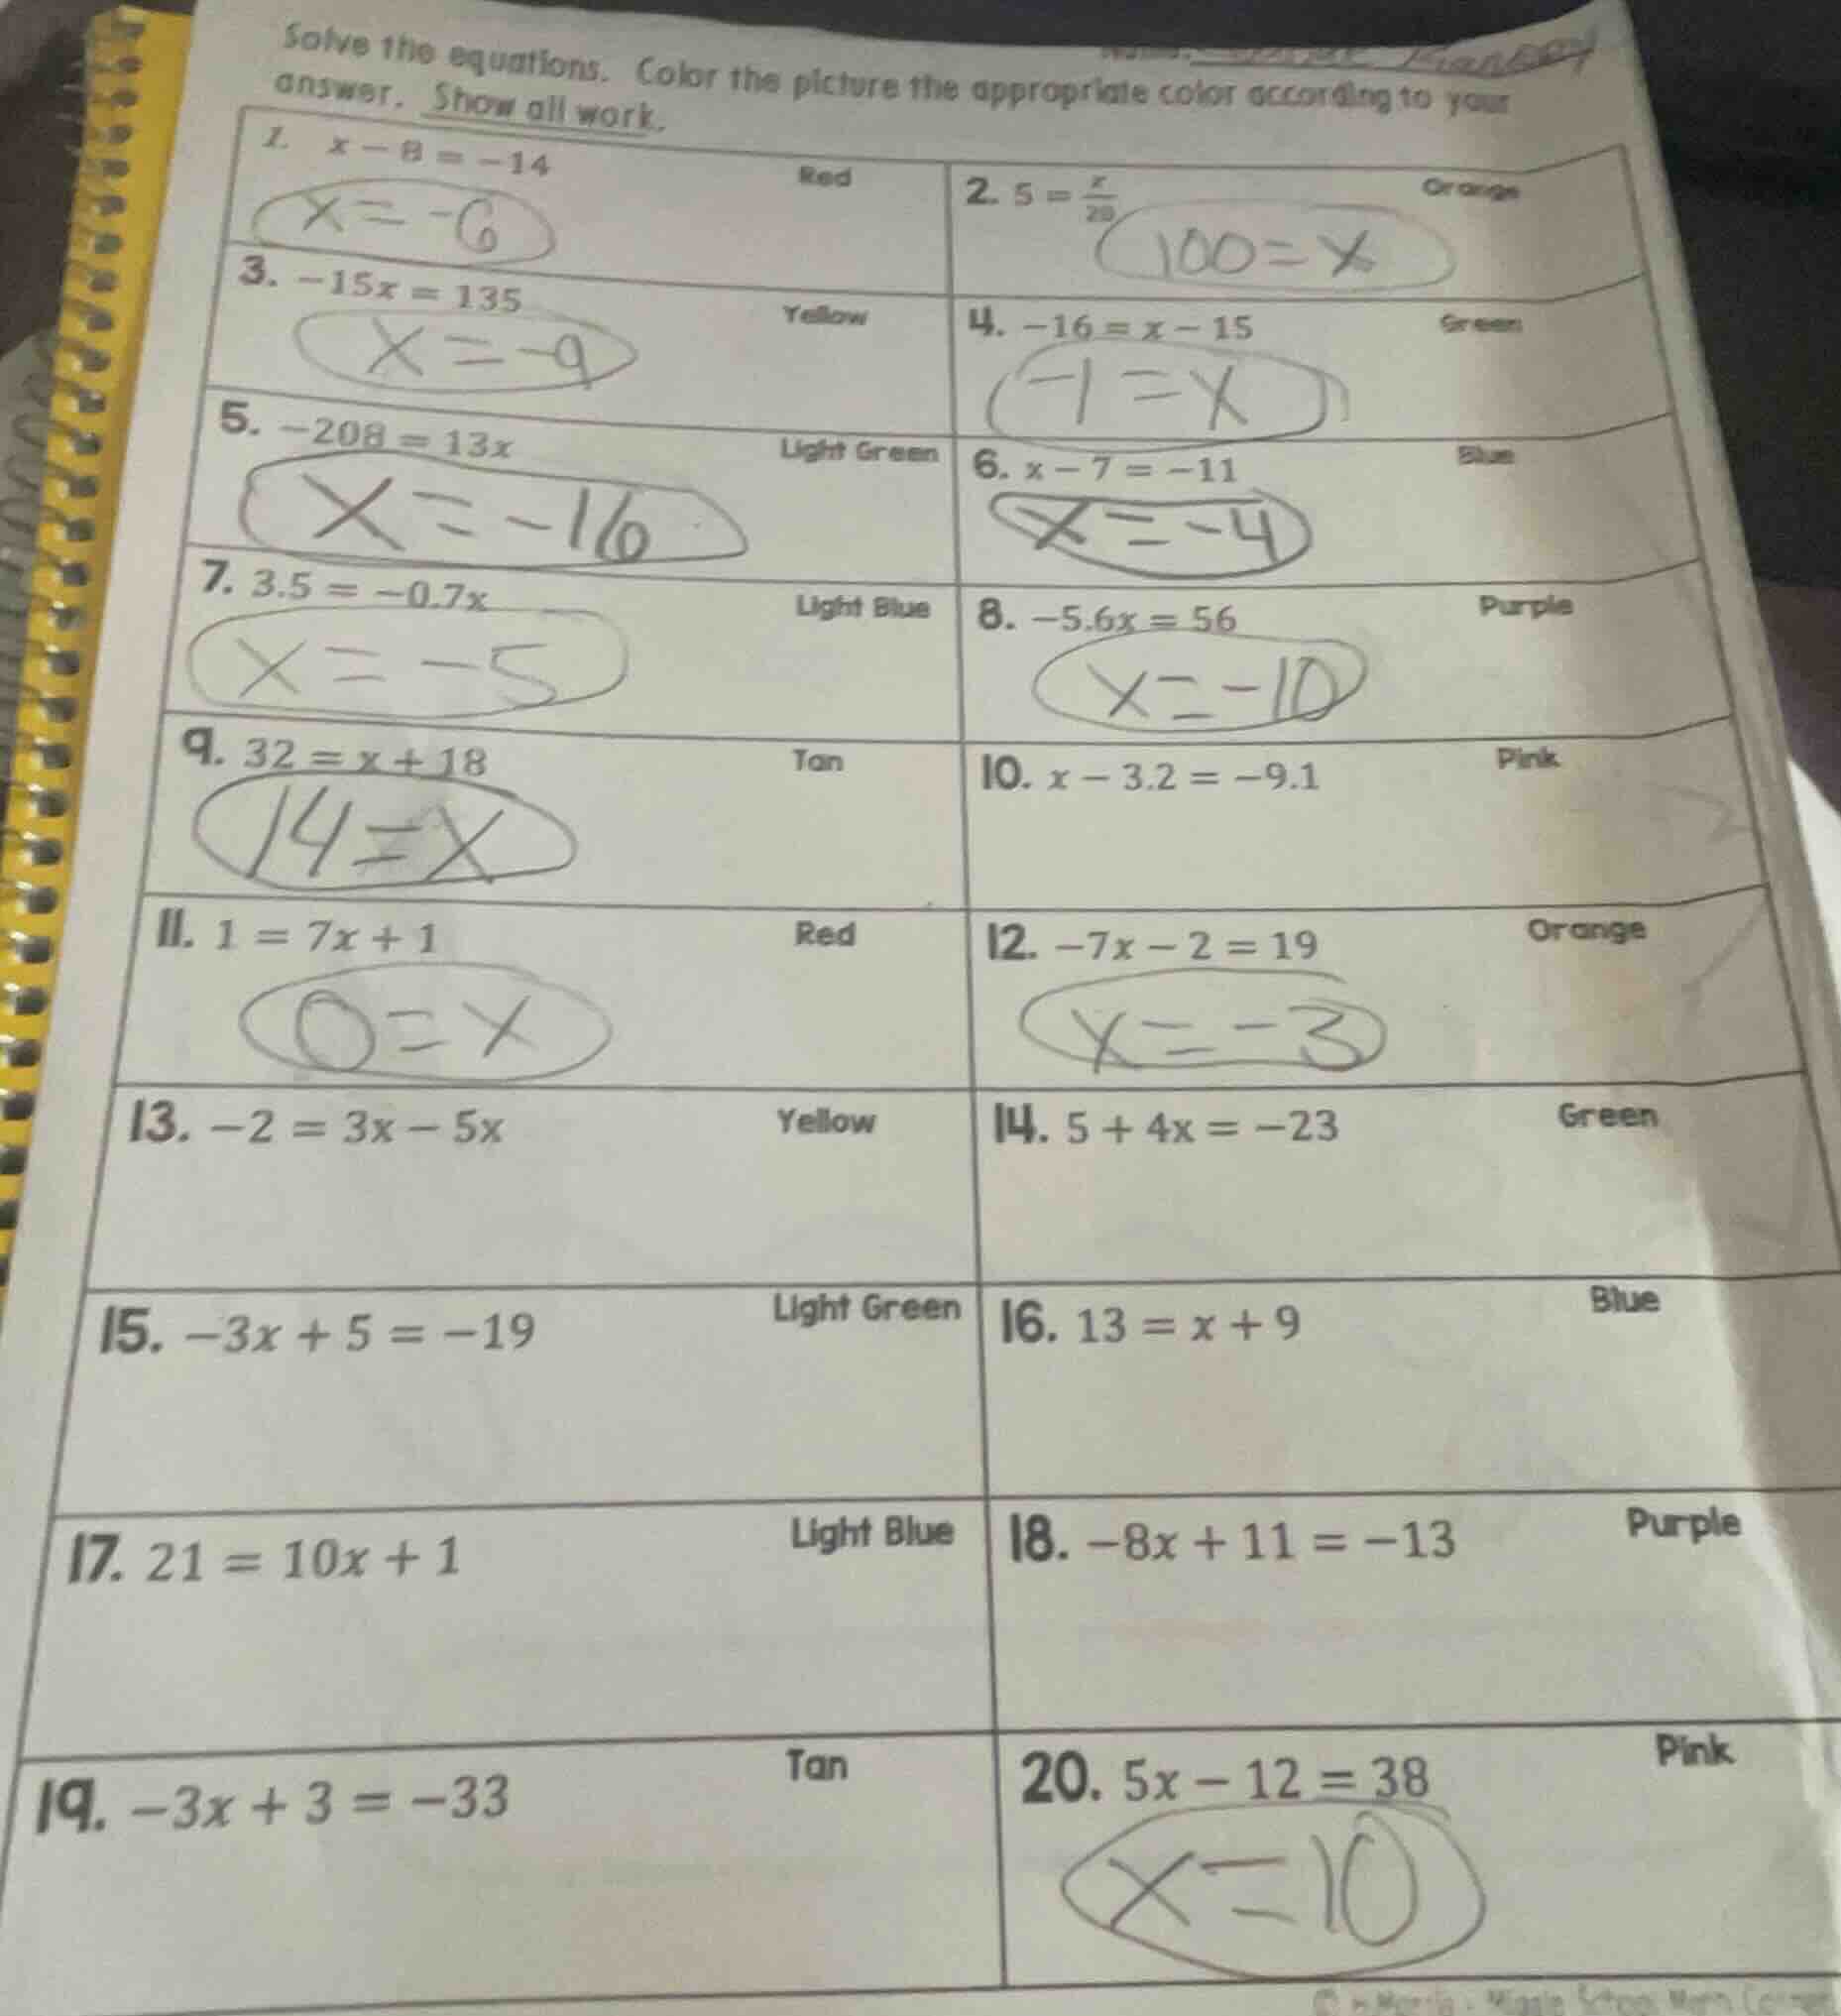 Solve the equations. Color the picture the appropriate color according to your
answer. Show all work.
1. x − 8 = −14 Red
x = -6
2. 5 = x/20 Orange
100 = x
3. −15x = 135 Yellow
x = -9
4. −16 = x − 15 Green
-1 = x
5. −208 = 13x Light Green
x = -16
6. x − 7 = −11 Blue
x = -4
7. 3.5 = −0.7x Light Blue
x = -5
8. −5.6x = 56 Purple
x = -10
9. 32 = x + 18 Tan
14 = x
10. x − 3.2 = −9.1 Pink
11. 1 = 7x + 1 Red
0 = x
12. −7x − 2 = 19 Orange
x = -3
13. −2 = 3x − 5x Yellow
14. 5 + 4x = −23 Green
15. −3x + 5 = −19 Light Green
16. 13 = x + 9 Blue
17. 21 = 10x + 1 Light Blue
18. −8x + 11 = −13 Purple
19. −3x + 3 = −33 Tan
20. 5x − 12 = 38 Pink
x = 10